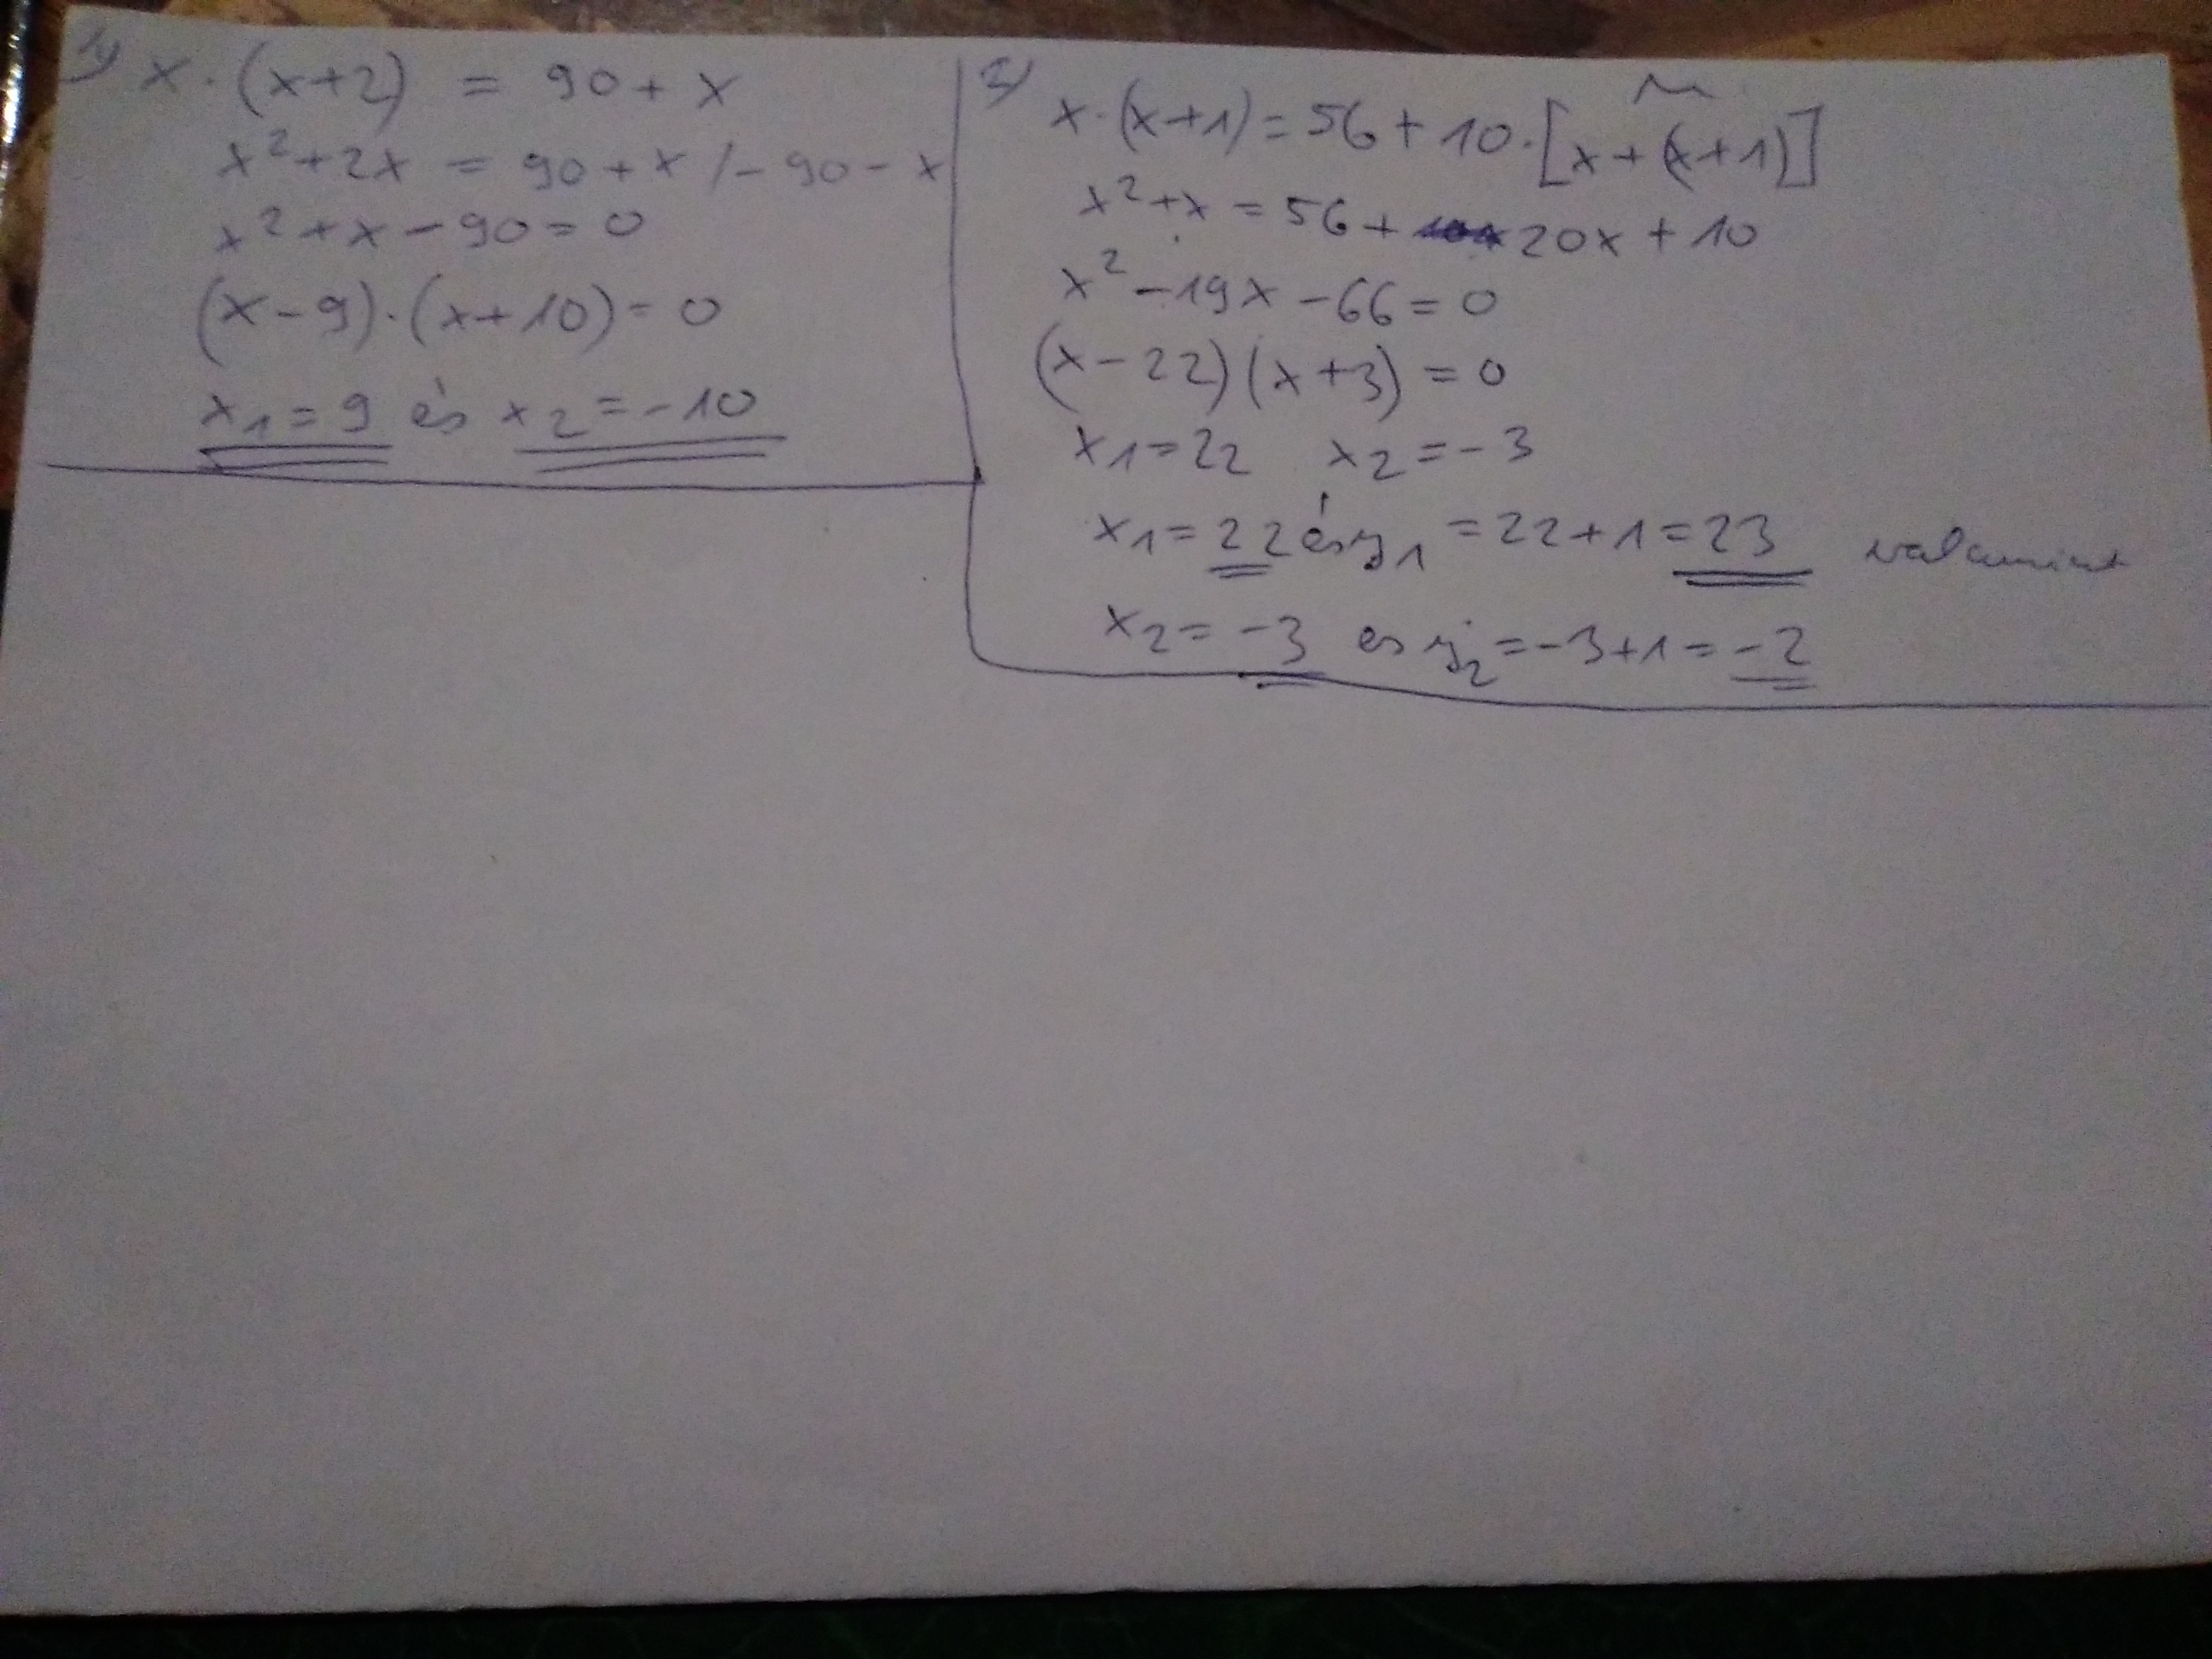 1) x · (x+2) = 90 + x
x² + 2x = 90 + x / - 90 - x
x² + x - 90 = 0
(x - 9) · (x + 10) = 0
x₁ = 9 és x₂ = -10
2) x · (x+1) = 56 + 10 · [x + (x+1)]
x² + x = 56 + 20x + 10
x² - 19x - 66 = 0
(x - 22) (x + 3) = 0
x₁ = 22 x₂ = -3
x₁ = 22 és y₁ = 22 + 1 = 23 valamint
x₂ = -3 es y₂ = -3 + 1 = -2